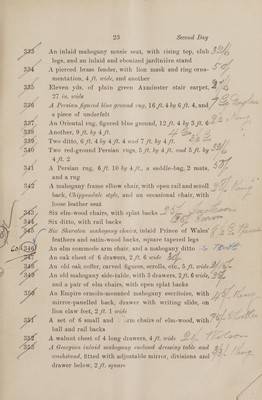 23 Second Day
333 An inlaid mahogany music seat, with rising top, club
legs, and an inlaid and ebonized jardinière stand
334 A pierced brass fender, with lion mask and ring orna-
mentation, 4 ft. wide, and another
335 Eleven yds. of plain green Axminster stair carpet,
27 in. wide
336 A Persian figured blue ground rug, 16 ft. 4 by 6 ft. 4, and
a piece of underfelt
337 An Oriental rug, figured blue ground, 12 ft. 4 by 3 ft. 6
338 Another, 9 ft. by 4 ft.
339 Two ditto, 6 ft. 4 by 4 ft. 4 and 7 ft. by 4 ft.
340 Two red-ground Persian rugs, 5 ft. by 4 ft. and 5 ft. by
4 ft. 2
341 A Persian rug, 6 ft. 10 by 4 ft., a saddle-bag, 2 mats,
and a rug
342 A mahogany frame elbow chair, with open rail and scroll
back, Chippendale style, and an occasional chair, with
loose leather seat
343 Six elm-wood chairs, with splat backs
344 Six ditto, with rail backs
345 Six Sheraton mahogany chairs, inlaid Prince of Wales'
feathers and satin-wood backs, square tapered legs
346 An elm commode arm chair, and a mahogany ditto
347 An oak chest of 6 drawers, 2 ft. 6 wide
348 An old oak coffer, carved figures, scrolls, etc., 5 ft. wide
349 An old mahogany side-table, with 3 drawers, 2 ft. 6 wide,
and a pair of elm chairs, with open splat backs
350 An Empire ormolu-mounted mahogany escritoire, with
mirror-panelled back, drawer with writing slide, on
lion claw feet, 2 ft. 1 wide
351 A set of 6 small and arm chairs of elm-wood, with
ball and rail backs
352 A walnut chest of 4 long drawers, 4 ft. wide
353 A Georgian inlaid mahogany enclosed dressing table and
washstand, fitted with adjustable mirror, divisions and
drawer below, 2 ft. square